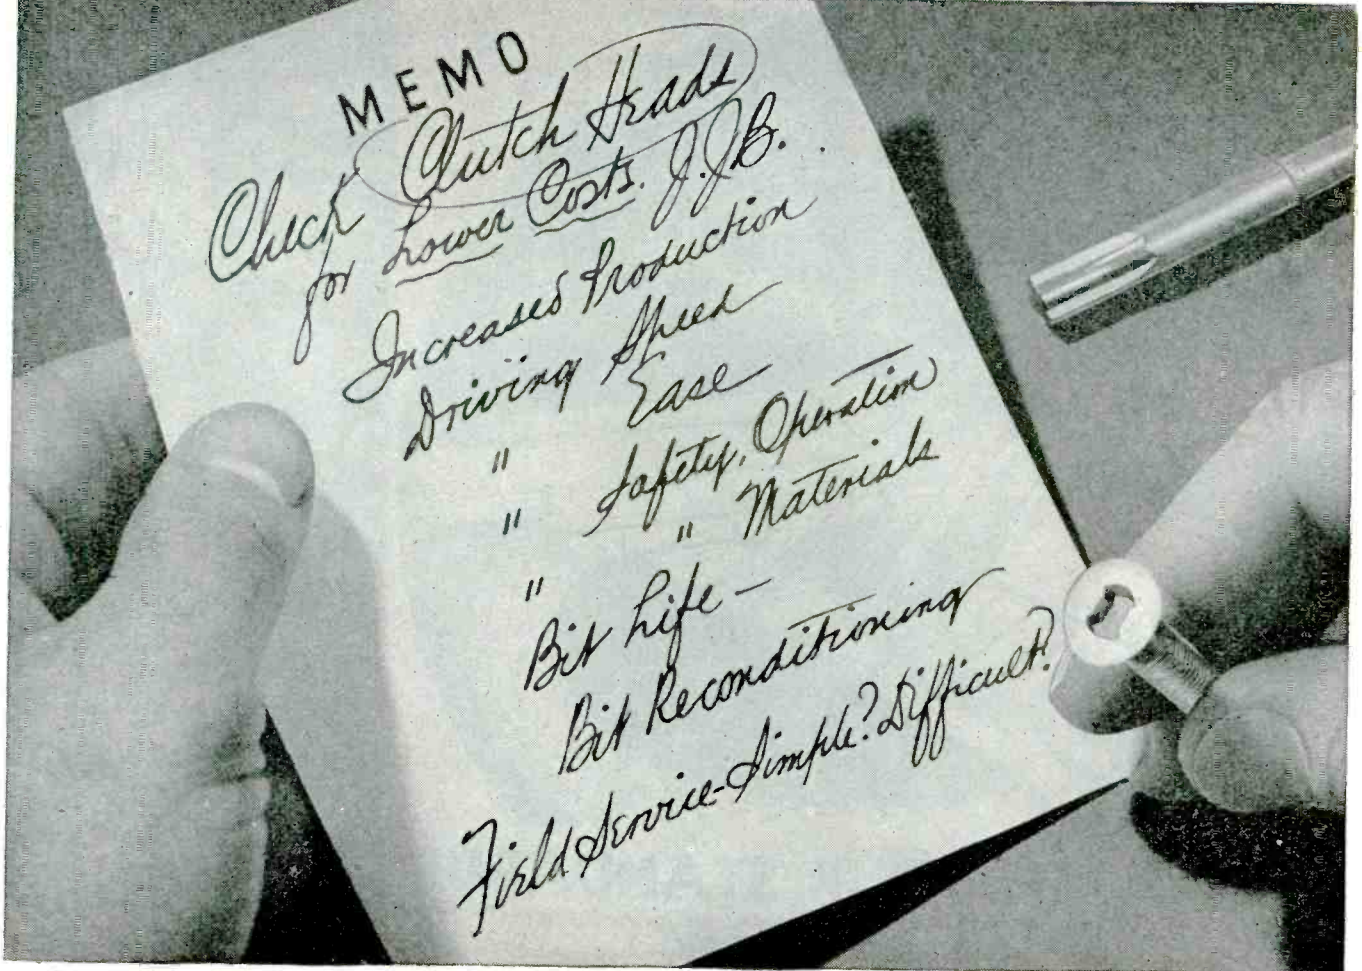 MEMO
Check Clutch Heads
for Lower Costs. J.J.B.
Increased Production
Driving Speed
" Ease
" Safety, Operation
" " Materials
Bit Life —
Bit Reconditioning
Field Service - Simple? Difficult?